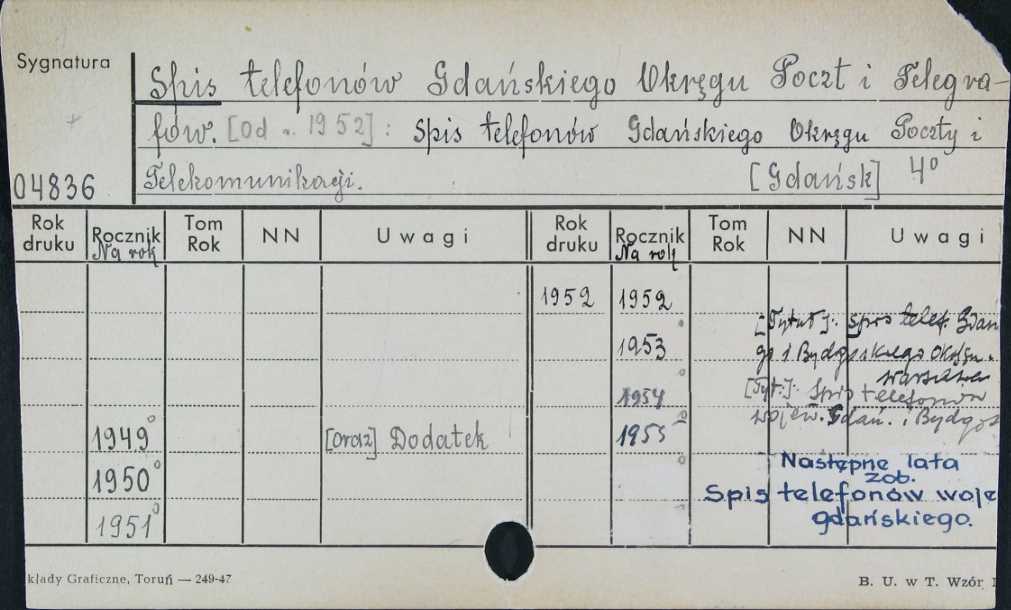 Sygnatura
Spis telefonów Gdańskiego Okręgu Poczt i Telegra-
fów. [Od r. 1952]: Spis telefonów Gdańskiego Okręgu Poczty i
04836 Telekomunikacji. [Gdańsk] 4°
Rok druku Rocznik Tom Rok NN Uwagi Rok druku Rocznik Tom Rok NN Uwagi
Na rok Na rok
1952 1952
[Tytuł]: Spis telef. Gdań
1953 go i Bydgoskiego Okręgu.
Warszawa
1954 [Tyt.]: Spis telefonów
wojew. Gdań. i Bydgos
1949 [oraz] Dodatek 1955
Następne lata
1950 zob.
Spis telefonów woje
1951 gdańskiego.
kłady Graficzne, Toruń — 249-47 B. U. w T. Wzór